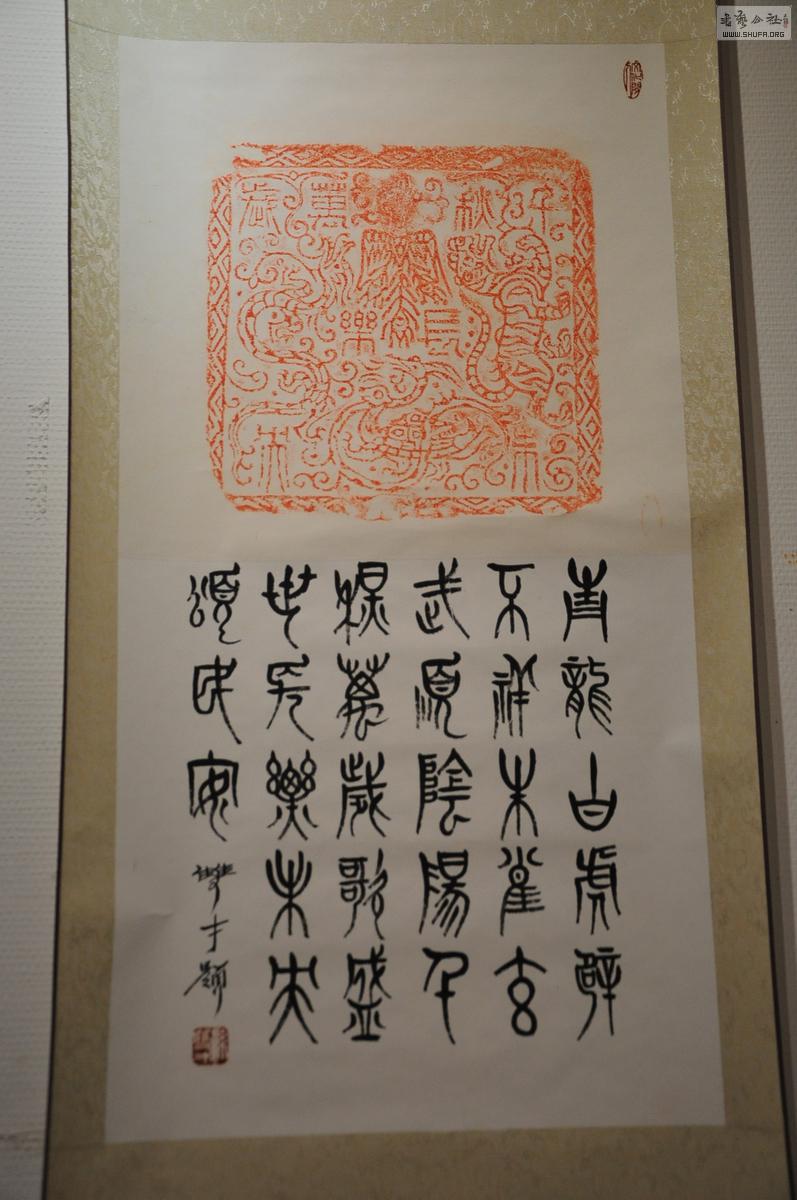 书艺公社
WWW.SHUFA.ORG
千秋萬歲
長樂
未央
青龍白虎辟
不祥朱雀玄
武順陰陽千
秋萬歲歌盛
世長樂未央
頌民安
雙才題